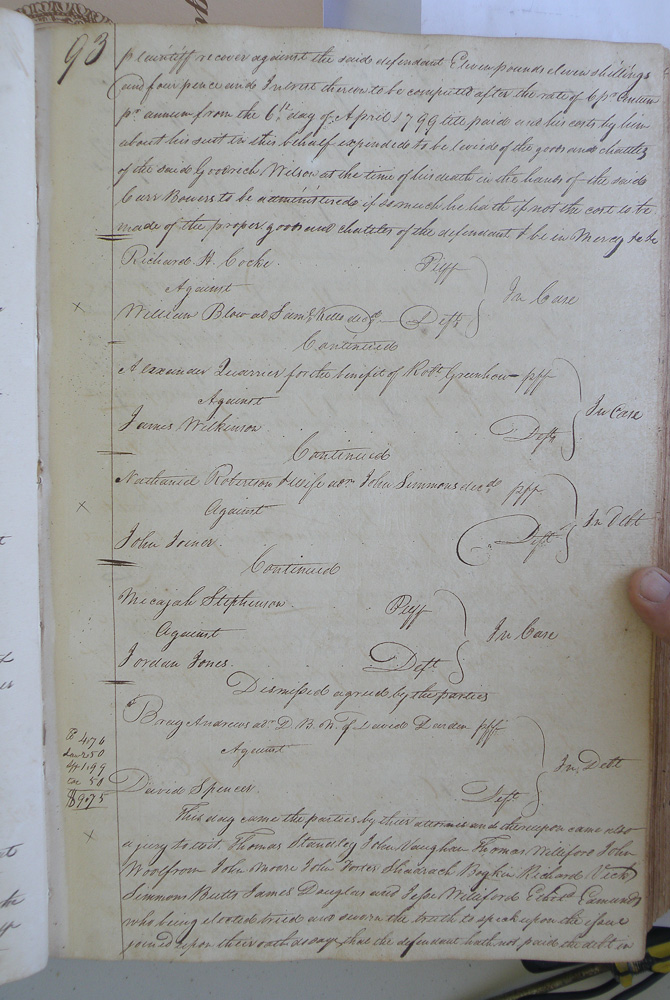 93
plaintiff recover against the said defendant Eleven pounds eleven shillings
and four pence and Interest thereon to be computed after the rate of 6 pr Centum
pr annum from the 6th day of April 1799 till paid and his costs by him
about his suit in this behalf expended to be levied of the goods and chattles
of the said Goodrich Wilson at the time of his death in the hands of the said
Carr Bowers to be administered if so much he hath if not the cost to be
made of the proper goods and chattles of the defendant & be in Mercy &c
Richard H. Cocke Plff
Against
In Case
William Blow ad Saml Kello decd Deft
Continued
Alexander Quarrier for the benefit of Robt Greenhow plf
Against
In Case
James Wilkinson Deft
Continued
Nathaniel Robertson & wife adx John Simmons decd plf
Against
In Debt
John Joiner Deft
Continued
Micajah Stephenson Plff
Against
In Case
Jordan Jones Deft
Dismissed agreed by the parties
Andrews adr D. B. N. of David Darden plff
Against
In Debt
David Spencer Deft
4.76
2.50
1.99
50
$9.75
This day came the parties by their attornies and thereupon came also
a jury to wit. Thomas Standley John Vaughan Thomas Williford John
Woolfrom John Moore John Shadrack Boykin Richard Vick
Simmons Butts James Douglas and Jesse Williford Ethd Edmunds
who being elected tried and sworn the truth to speak upon the issue
joined upon their oath do say, that the defendant hath not paid the debt in